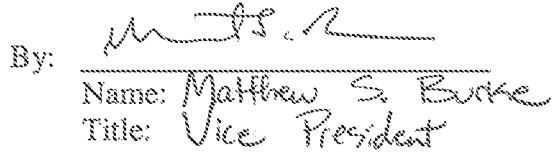 By:
Name: Matthew S. Burke
Title: Vice President